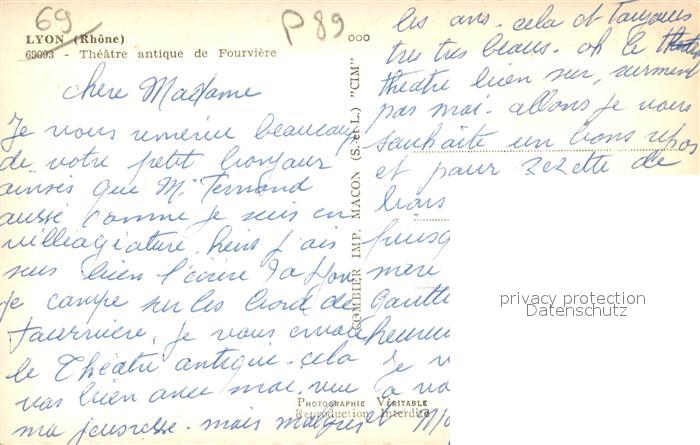 69
P89
LYON (Rhône)
69093 - Théâtre antique de Fourvière
ooo
chère Madame
Je vous remercie beaucoup
de votre petit bonjour
ainsis que Mr Fernand
aussi comme je suis en
villiagiature, hein j'ais
sus bien l'écrire
je campe sur les bord de
Fourvière, je vous envoie
le Théâtre antique. cela
vas bien avec moi, vue
ma jeunesse. mais malgrés
les ans. cela et Toujours
tres tres beaus. oh le
theatre bien sur, surement
pas moi. allons je vous
souhaite un bons repos
et pour zezette de
bais
puisq
mere
Goutt
heureu
je v
a vo
et
COMBIER IMP. MACON (S.-et-L.) "CIM"
PHOTOGRAPHIE VÉRITABLE
Reproduction Interdite
privacy protection
Datenschutz